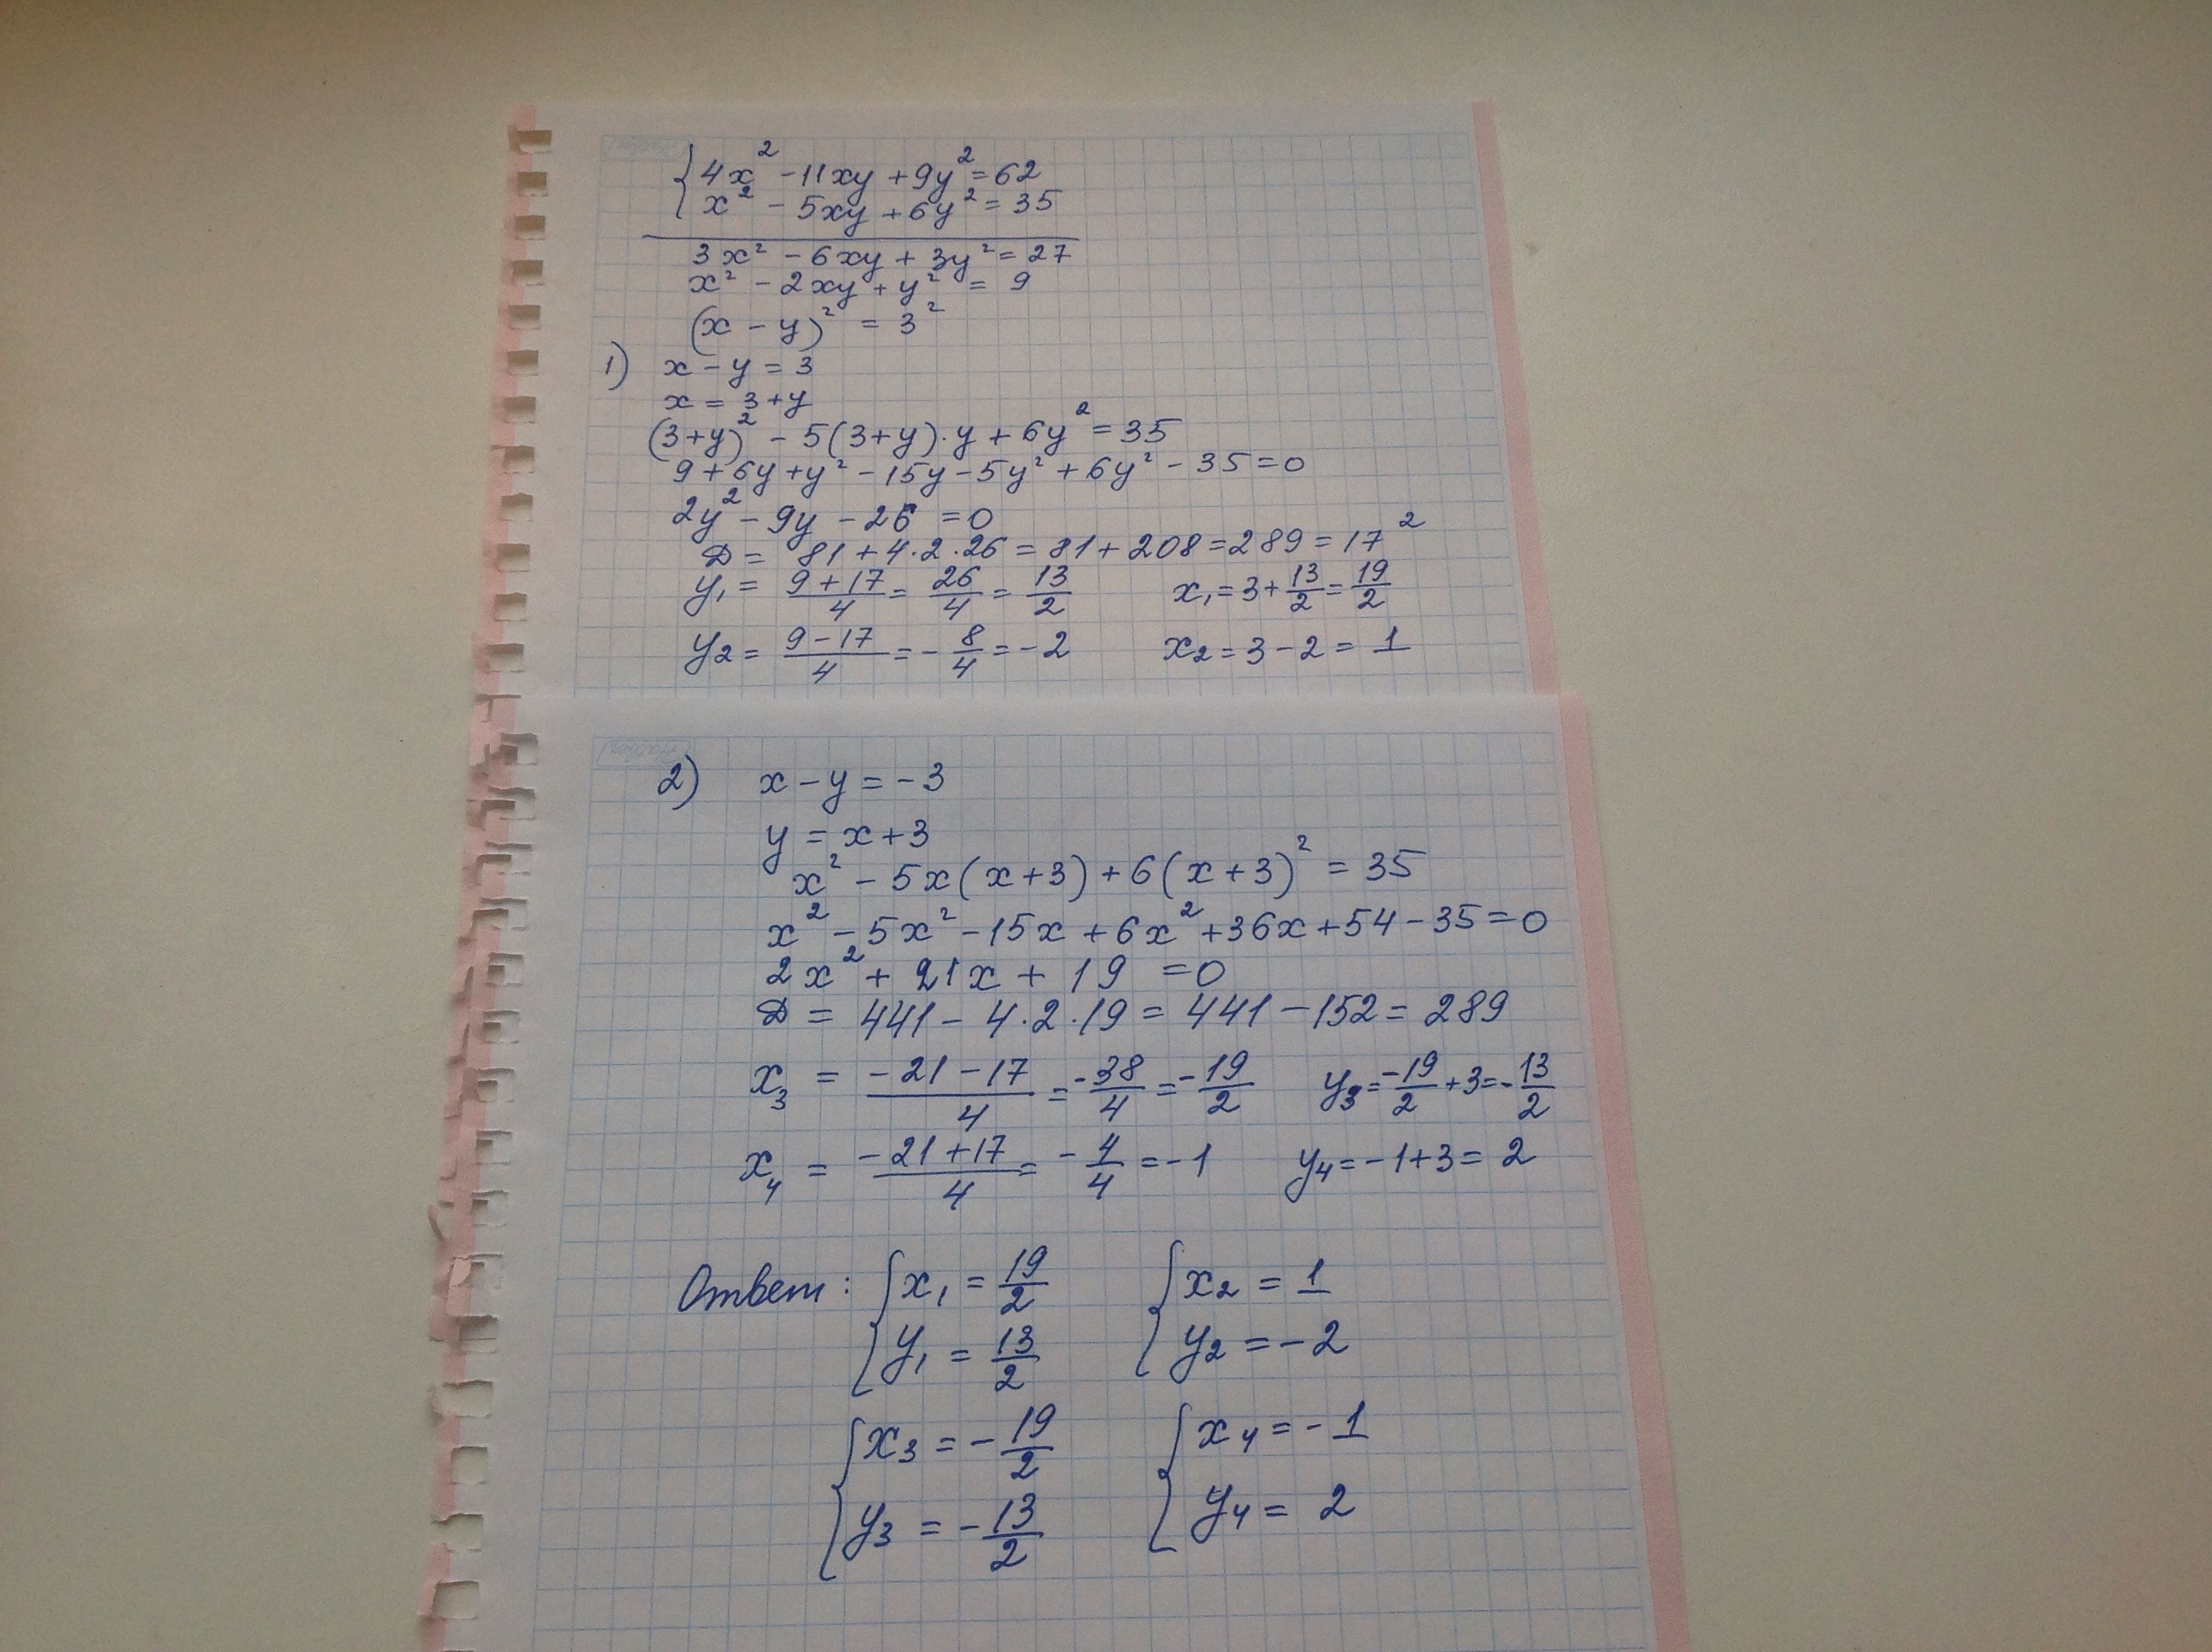 {4x² - 11xy + 9y² = 62
x² - 5xy + 6y² = 35
3x² - 6xy + 3y² = 27
x² - 2xy + y² = 9
(x - y)² = 3²
1) x - y = 3
x = 3 + y
(3+y)² - 5(3+y)·y + 6y² = 35
9 + 6y + y² - 15y - 5y² + 6y² - 35 = 0
2y² - 9y - 26 = 0
D = 81 + 4·2·26 = 81 + 208 = 289 = 17²
y₁ = (9+17)/4 = 26/4 = 13/2 x₁ = 3 + 13/2 = 19/2
y₂ = (9-17)/4 = -8/4 = -2 x₂ = 3 - 2 = 1
2) x - y = -3
y = x + 3
x² - 5x(x+3) + 6(x+3)² = 35
x² - 5x² - 15x + 6x² + 36x + 54 - 35 = 0
2x² + 21x + 19 = 0
D = 441 - 4·2·19 = 441 - 152 = 289
x₃ = (-21-17)/4 = -38/4 = -19/2 y₃ = -19/2 + 3 = -13/2
x₄ = (-21+17)/4 = -4/4 = -1 y₄ = -1 + 3 = 2
Ответ: {x₁ = 19/2 {x₂ = 1
y₁ = 13/2 y₂ = -2
{x₃ = -19/2 {x₄ = -1
y₃ = -13/2 y₄ = 2